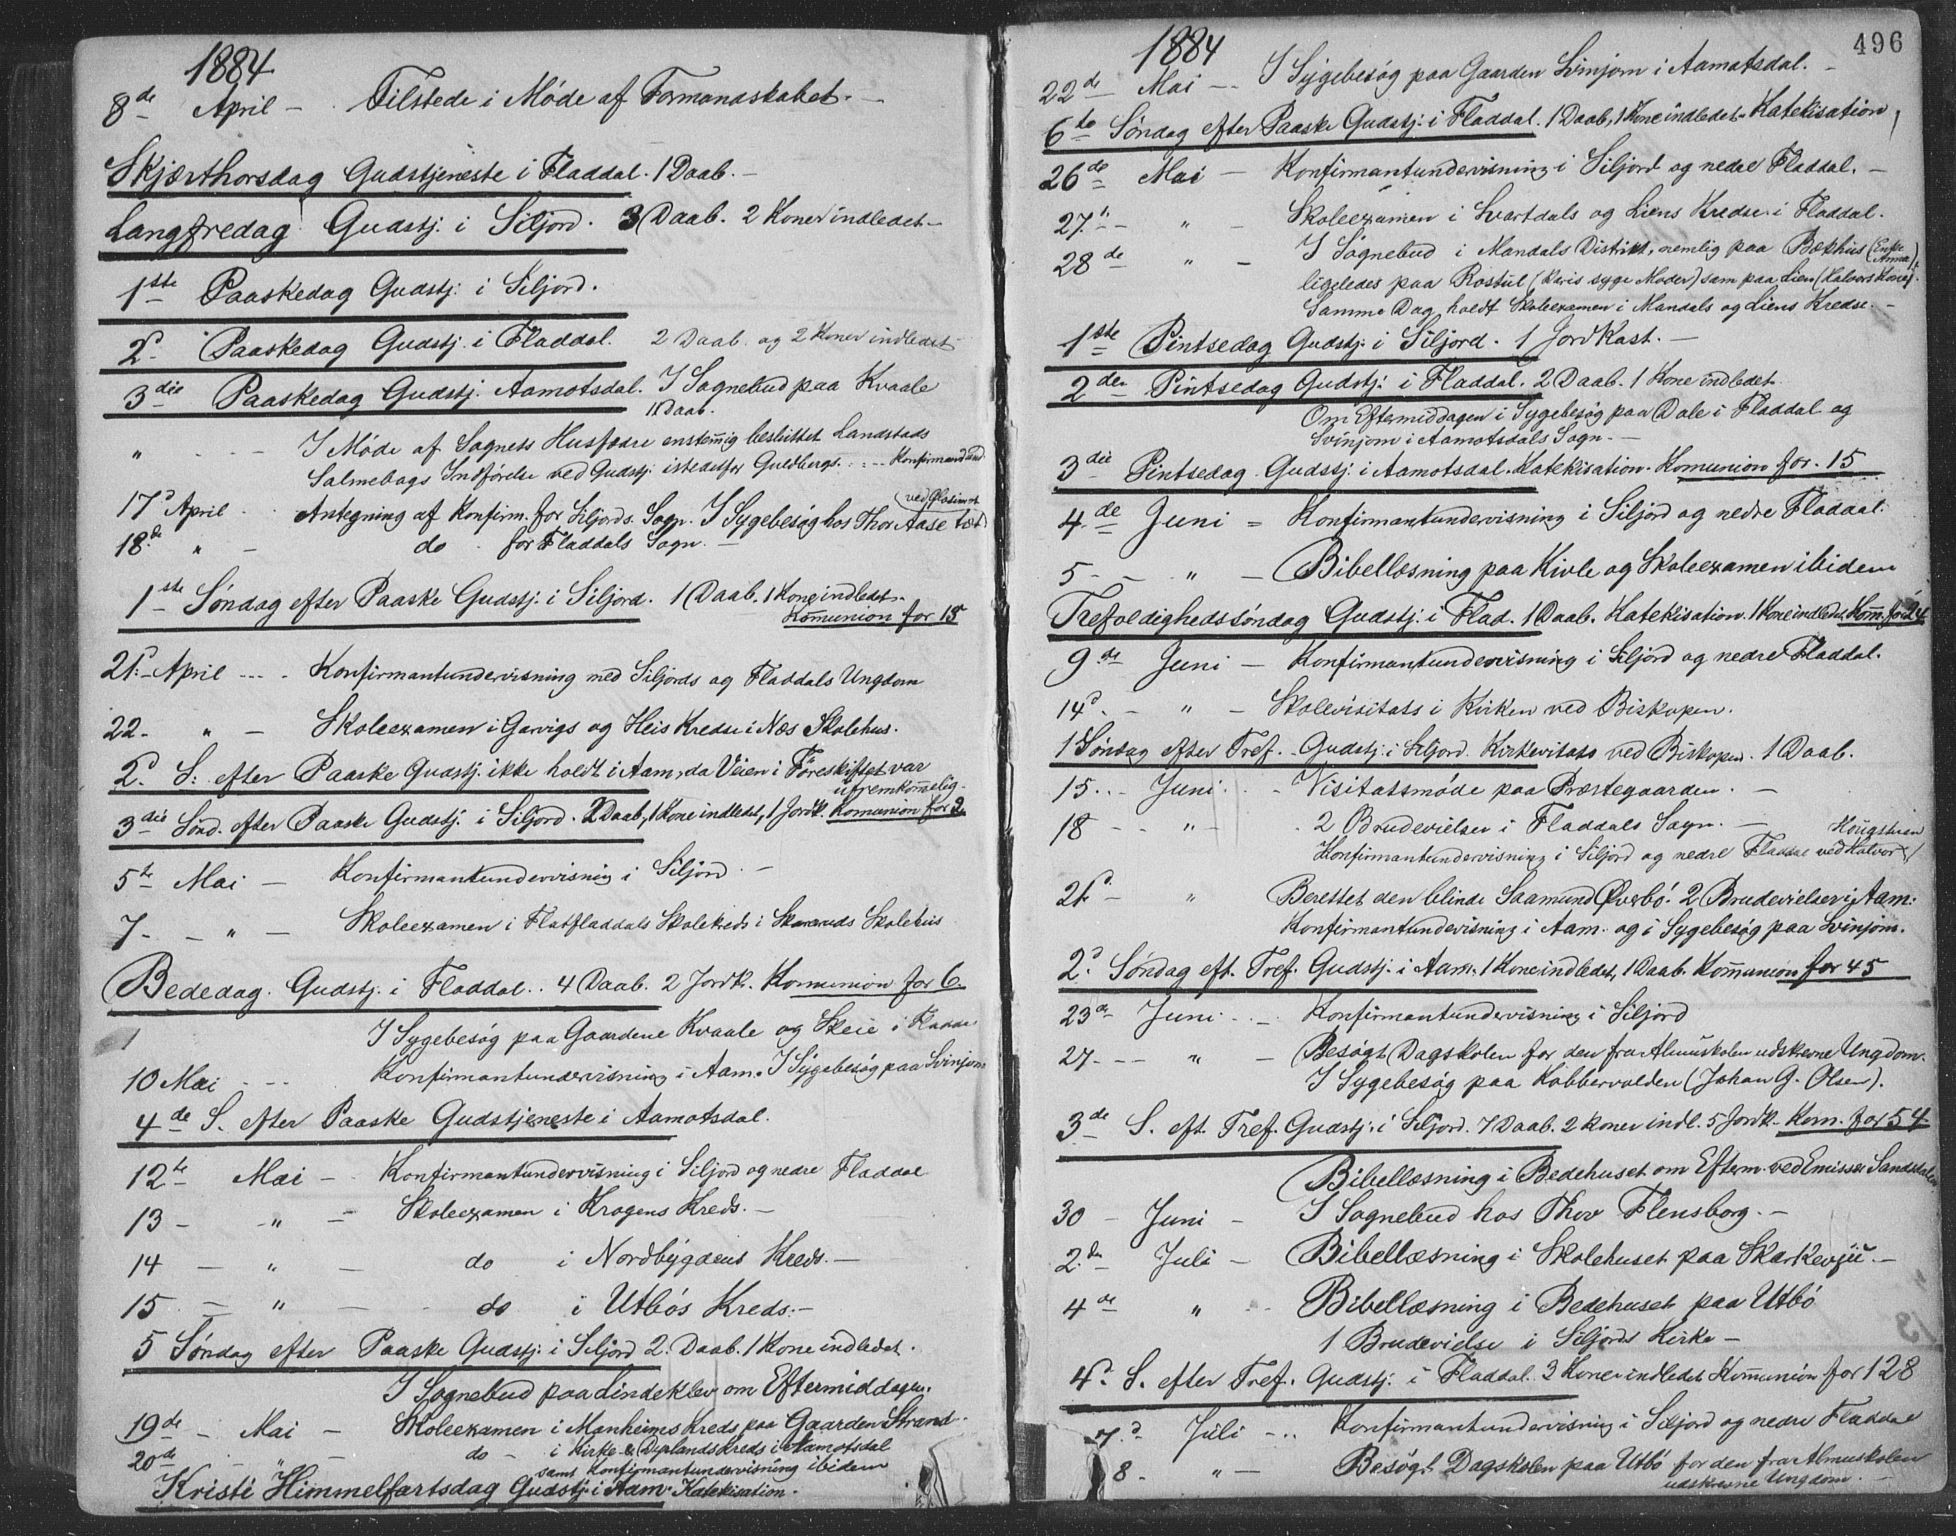 1884
8de April - Tilstede i Møde af Formandskabet. -
Skjærthorsdag Gudstjeneste i Fladdal. 1 Daab. -
Langfredag Gudstj. i Siljord. 3 Daab. 2 Koner indledet -
1ste Paaskedag Gudstj. i Siljord.
2d. Paaskedag Gudstj. i Fladdal. 2 Daab. og 2 Koner indledet
3die Paaskedag Gudstj. Aamotsdal. I Sognebud paa Kvaale
1 Daab.
" - - I Møde af Sognets Husfædre enstemig besluttet Landstads
Salmebogs Indførelse ved Gudstj. istedetfor Guldbergs.
17d April - Antegning af Konfirm. for Siljords Sogn. I Sygebesøg hos Thor Aase
18de " - do for Fladdals Sogn. -
1ste Søndag efter Paaske Gudstj. i Siljord. 1 Daab. 1 Kone indledet.
Kommunion for 15
21d. - April - - - Konfirmantundervisning med Siljords og Fladdals Ungdom
22 - " - Skoleexamen i Garvigs og Heis Kredse i Næs Skolehus.
2d. S. efter Paaske Gudstj. ikke holdt i Aam. da Veien i Føreskiftet var
ufremkommelig.
3die Sønd. efter Paaske Gudstj. i Siljord. 2 Daab, 1 Kone indledet, 1 Jordk. Komunion for 2
5te Mai - Konfirmantundervisning i Siljord. -
7 - - " - Skoleexamen i Flatfladdals Skolekreds i Skolehus
Bededag. Gudstj. i Fladdal. 4 Daab. 2 Jordk. Komunion for 6.
I Sygebesøg paa Gaardene Kvaale og Skeie i Fladdal
10 Mai - - - Konfirmantundervisning i Aam. I Sygebesøg paa Svinjom
4de S. efter Paaske Gudstjeneste i Aamotsdal.
12te Mai - Konfirmantundervisning i Siljord og nedre Fladdal
13 - - " - Skoleexamen i Krogens Kreds. -
14 - " - do i Nordbygdens Kreds. -
15 - " - do i Utbøs Kreds. -
5 Søndag efter Paaske Gudstj. i Siljord 2. Daab. 1 Kone indledet.
I Sognebud paa Lindeklev om Eftermiddagen.
19de - Mai - Skoleexamen i Manheims Kreds paa Gaarden Strand.
20de " - do - i Kirke & Kreds i Aamotsdal
samt Konfirmantundervisning ibidem
Kristi Himmelfartsdag Gudstj. i Aam. Katekisation.
496
1884
22de Mai - - I Sygebesøg paa Gaarden Svinjom i Aamotsdal. -
6te Søndag efter Paaske Gudstj. i Fladdal. 1 Daab, 1 Kone indledet. Katekisation
26de Mai - Konfirmantundervisning i Siljord og nedre Fladdal. -
27de - " - Skoleexamen i Svartdals og Liens Kredse i Fladdal.
28de " - I Sognebud i Mandals Distrikt, nemlig paa Bækhus (Enke Anne),
ligeledes paa Rostul (Karis syge Moder) som paa Lien (Halvors Kone).
Samme Dag holdt Skoleexamen i Mandals og Liens Kredse. -
1ste Pintsedag Gudstj. i Siljord. 1 Jordkast. -
2den Pintsedag Gudstj. i Fladdal. 2 Daab. 1 Kone indledet
Om Eftermiddagen i Sygebesøg paa Dale i Fladdal og
Svinjom i Aamotsdals Sogn. -
3die Pintsedag Gudstj. i Aamotsdal. Katekisation. Komunion for 15
4de Juni = Konfirmantundervisning i Siljord og nedre Fladdal.
5 - - " - Bibellæsning paa Kivle og Skoleexamen ibidem
Trefoldighedssøndag Gudstj. i Flad. 1 Daab. Katekisation. 1 Kone indledet. Komm. for 24
9de Juni - Konfirmantundervisning i Siljord og nedre Fladdal.
14d. - " - Skolevisitats i Kirken ved Biskopen.
1 Søndag efter Tref. Gudstj. i Siljord. Kirkevitats ved Biskopen. 1 Daab.
15 - - Juni - - Visitatsmøde paa Præstegaarden. -
18 - - " - - 2 Brudevielser i Fladdals Sogn. -
Konfirmantundervisning i Siljord og nedre Fladdal ved Halvor
21d. " Berettet den blinde Saamund Øverbö. 2 Brudevielser i Aam.
Konfirmantundervisning i Aam. og i Sygebesøg paa Svinjom.
2d. Søndag eft. Tref. Gudstj. i Aam. 1 Kone indledet, 1 Daab. Kommunion for 45
23de Juni - - Konfirmantundervisning i Siljord
27 - - - " - Besøgt Dagskolen for den fra Almuskolen udskrevne Ungdom.
I Sygebesøg paa Kobbervolden (Johan G. Olsen).
3de S. eft. Tref. Gudstj. i Siljord. 7 Daab. 2 Koner indl. 5 Jordk. Kom. for 54.
Bibellæsning i Bedehuset om Efterm. ved Emissær
30 - Juni - I Sognebud hos Thov Flensborg. -
2.den Juli - Bibellæsning i Skolehuset paa Skorkevju. -
4de " - Bibellæsning i Bedehuset paa Utbö
1 Brudevielse i Siljords Kirke -
4d. S. efter Tref. Gudstj. i Fladdal. 3 Koner indledet Kommunion for 128
7.d Juli - - Konfirmantundervisning i Siljord og nedre Fladdal
8 - " - Besøgt Dagskolen paa Utbö for den fra Almuskolen
udskrevne Ungdom. -